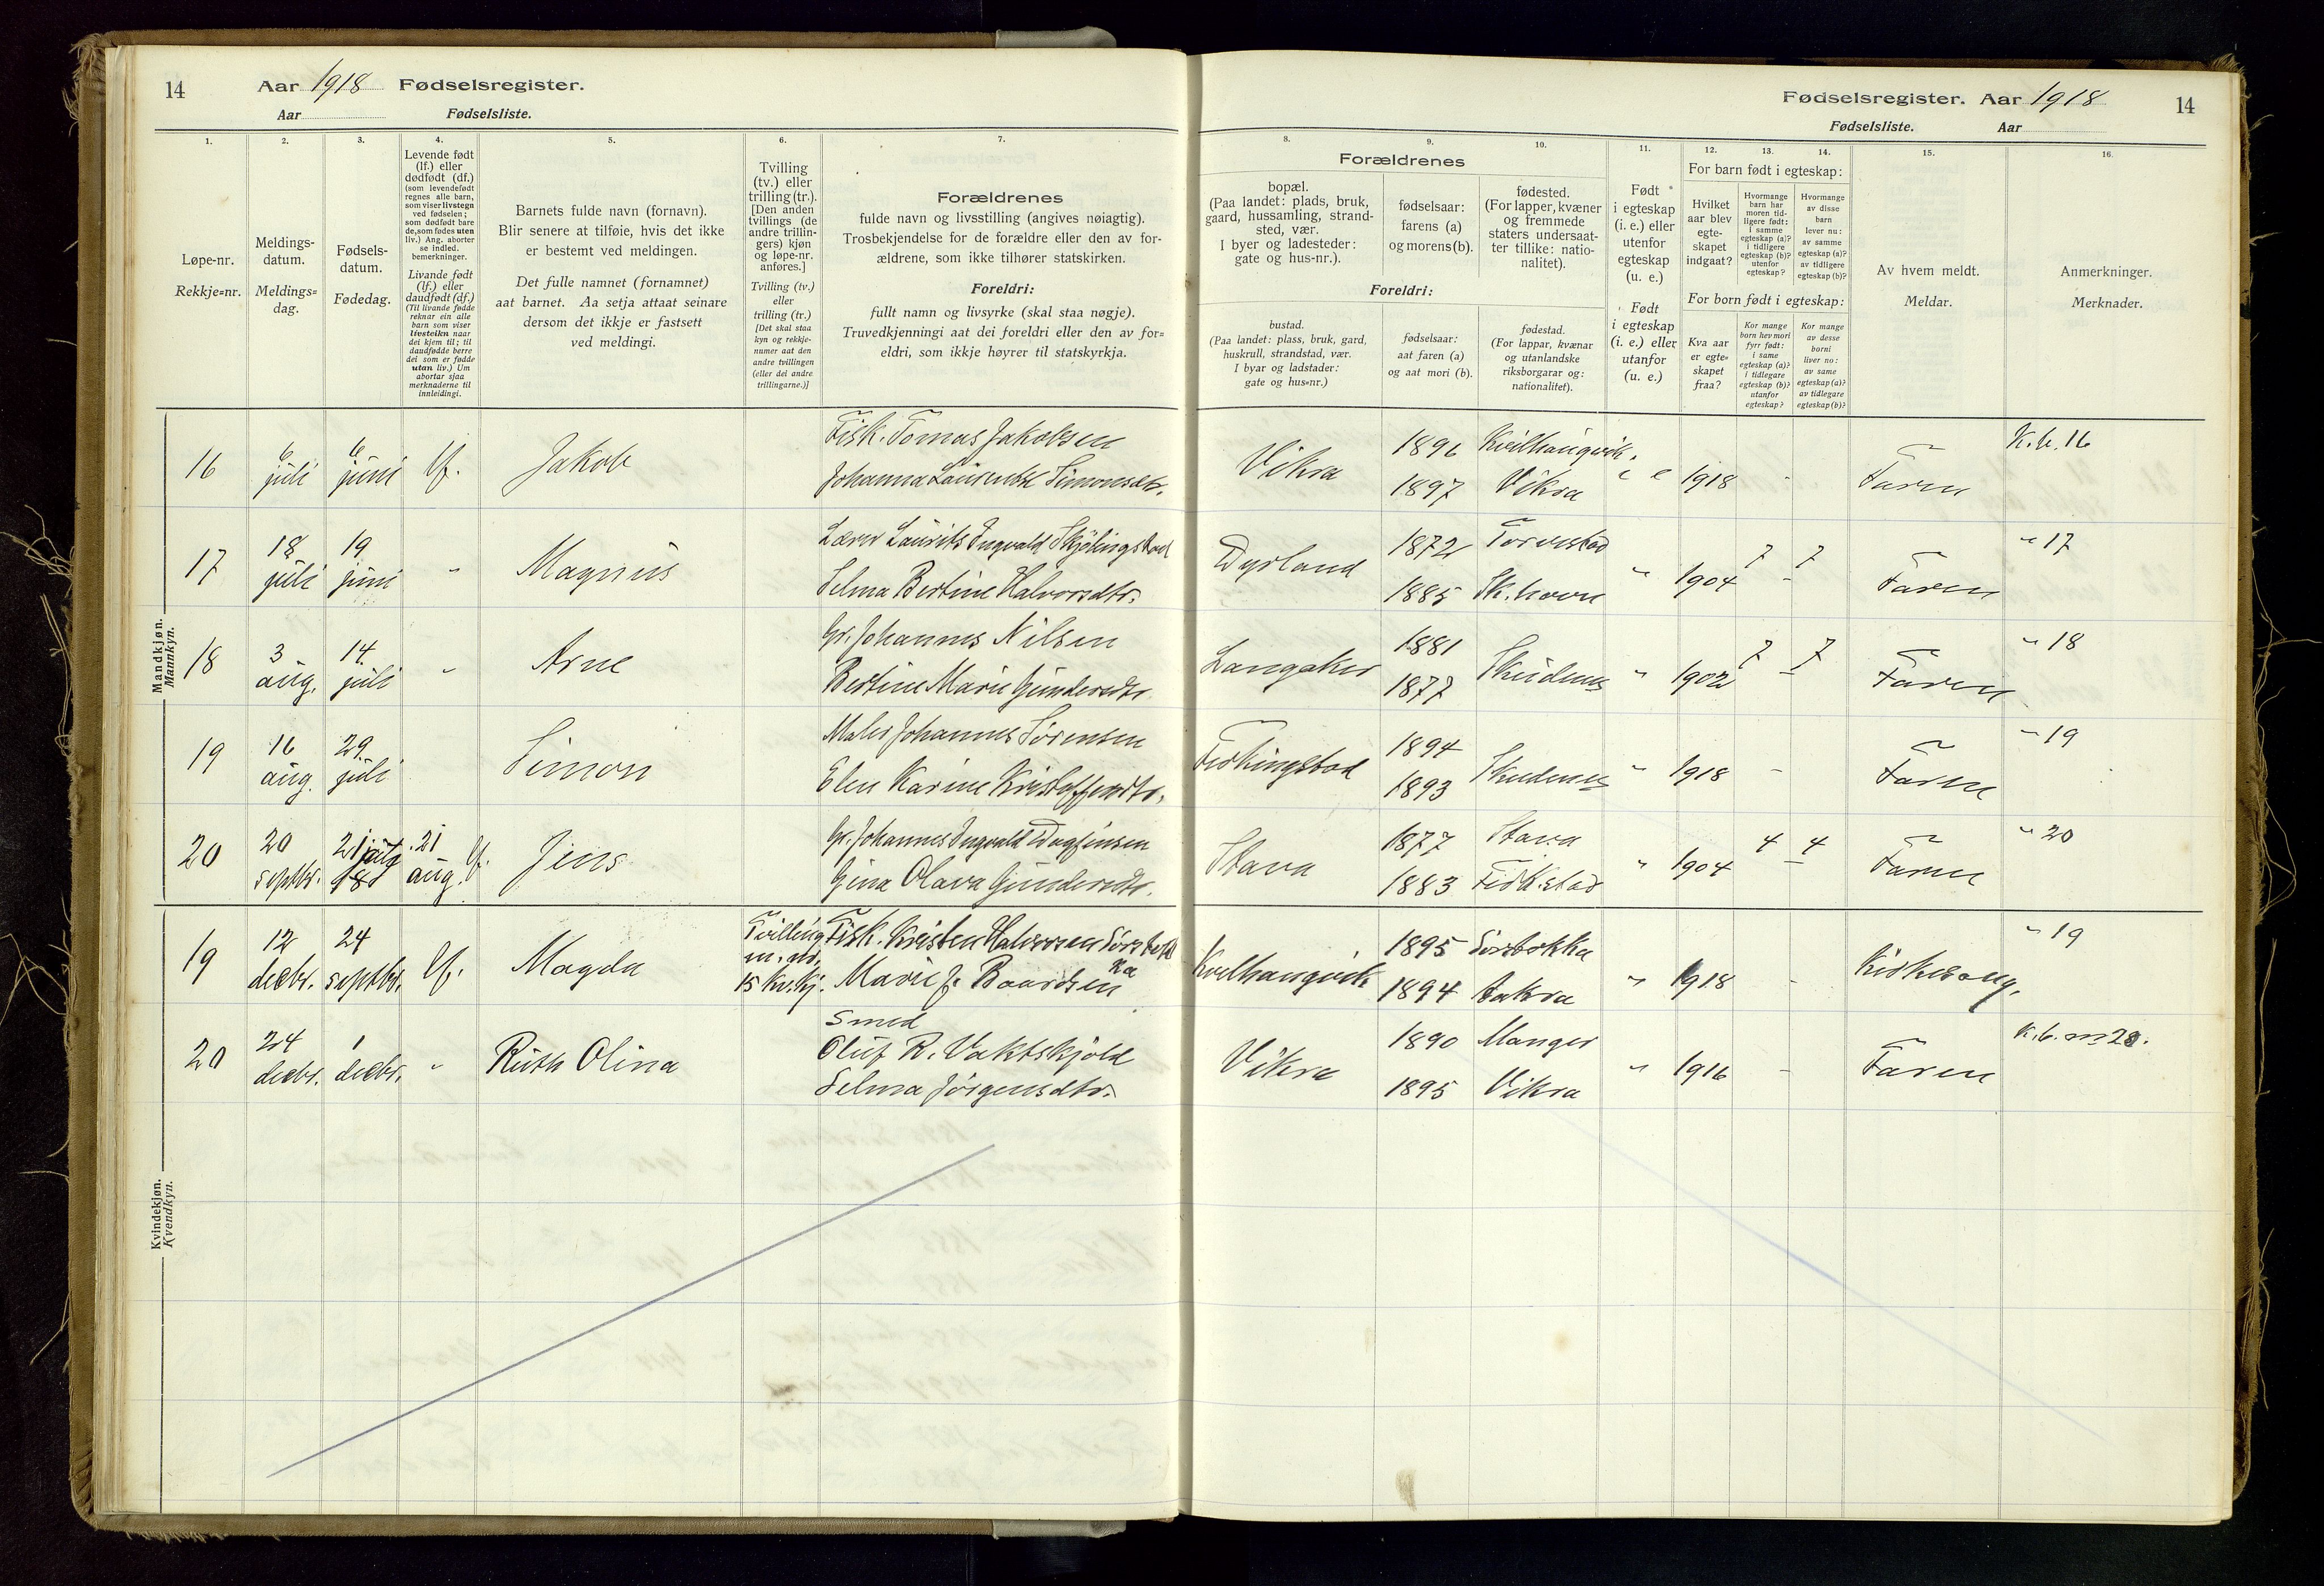 14 Aar 1918 Fødselsregister.
Aar Fødselsliste.
Fødselsregister. Aar 1918 14
Fødselsliste. Aar
1.
Løpe-nr.
Rekkje=nr.
2.
Meldings-
datum.
Meldings=
dag.
3.
Fødsels-
datum.
Fødedag.
4.
Levende født
(lf.) eller
dødfødt (df.)
(som levendefødt
regnes alle barn,
som viser livstegn
ved fødselen;
som dødfødt bare
de, som fødes uten
liv.) Ang. aborter
se indled.
bemerkninger.
Livande født
(lf.) eller
daudfødt (df.)
(Til livande fødde
reknar ein alle
barn som viser
livsteikn naar
dei kjem til; til
daudfødde berre
dei som er fødde
utan liv.) Um
abortar sjaa
merknaderne til
innleidingi.
5.
Barnets fulde navn (fornavn).
Blir senere at tilføie, hvis det ikke
er bestemt ved meldingen.
Det fulle namnet (fornamnet)
aat barnet. Aa setja attaat seinare
dersom det ikkje er fastsett
ved meldingi.
6.
Tvilling
(tv.) eller
trilling (tr.).
[Den anden
tvillings (de
andre trillin-
gers) kjøn
og løpe-nr.
anføres.]
Tvilling (tv.)
eller
trilling (tr.)
[Det skal staa
kyn og rekkje-
numer aat den
andre tvillingen
(eller dei andre
trillingarne.)]
7.
Forældrenes
fulde navn og livsstilling (angives nøiagtig).
Trosbekjendelse for de forældre eller den av for-
ældrene, som ikke tilhører statskirken.
Foreldri:
fullt namn og livsyrke (skal staa nøgje).
Truvedkjenningi aat dei foreldri eller den av for=
eldri, som ikkje høyrer til statskyrkja.
8.
Forældrenes
bopæl.
(Paa landet: plads, bruk,
gaard, hussamling, strand-
sted, vær.
I byer og ladesteder:
gate og hus-nr.).
Foreldri:
bustad.
(Paa landet: plass, bruk, gard,
huskrull, strandstad, vær.
I byar og ladstader:
gate og hus=nr.)
9.
fødselsaar:
farens (a)
og morens (b).
fødselsaar:
aat faren (a)
og aat mori (b).
10.
fødested.
(For lapper, kvæner
og fremmede
staters undersaat-
ter tillike: natio-
nalitet).
fødestad.
(For lappar, kvænar
og utanlandske
riksborgarar og:
nationalitet).
11.
Født
i egteskap
(i. e.) eller
utenfor
egteskap
(u. e.)
Født
i egteskap
(i. e.) eller
utanfor
(u. e.)
12. 13. 14.
For barn født i egteskap:
Hvilket
aar blev
egte-
skapet
indgaat?
Hvormange
barn har
moren tid-
ligere født:
i samme
egteskap (a)?
i tidligere
egteskap (b)?
utenfor
egteskap?
Hvormange
av disse
barn
lever nu:
av samme
egteskap (a)?
av tidligere
egteskap (b)?
For born født i egteskap:
Kva aar
er egte=
skapet
fraa?
Kor mange
born hev mori
fyrr født:
i same
egteskap (a)?
i tidlegare
egteskap (b)?
utanfor
egteskap?
Kor mange
av desse
borni
liver no:
av same
egteskap (a)?
av tidlegare
egteskap (b)?
15.
Av hvem meldt.
Meldar.
16.
Anmerkninger.
Merknader.
Mandkjøn.
Mannkyn.
16 6 juli 6 juni lf. Jakob Fisk. Tomas Jakobsen Vikra 1896 Kvilhaugvik i e 1918 - Faren K.b. 16
Johanna Laurentse Simonsdtr. 1897 Vikra
17 18 juli 19 juni " Magnus Lærer Laurits Ingvald Skjölingstad Dyrland 1872 Torvestad " 1904 7 7 Faren " 17
Selma Bertine Halvorsdtr. 1885 Sk.havn
18 3 aug. 14. juli " Arne Gr. Johannes Nilsen Langaker 1881 Skudenes " 1902 7 7 Faren " 18
Bertine Marie Gundersdtr. 1877
19 16 aug. 29. juli Simon Maler Johannes Sørensen Ferkingstad 1894 Skudenes " 1918 - Faren " 19
Elen Karine Kristoffersdtr. 1893
20 20 septbr. 21 21 aug. lf. Jens Gr. Johannes Ingvald Dagfinsen Stava 1877 Stava " 1904 4 4 Faren " 20
Gina Olava Gundersdtr. 1883 Ferk.stad
Kvindekjøn.
Kvendkyn.
19 12 decbr. 24 septbr. lf. Magda Tvilling m. nr. 15 kv.kj. Fisk. Kristen Halvorsen Sørstokka Kvilhaugvik 1895 Sørstokka " 1918 - Kirkesang. " 19
Marie J. Baardsen 1894 Aakra
20 24 decbr. 1 decbr. " Ruth Olina Smed
Oluf R. Vaktskjold Vikra 1890 Manger " 1916 - Faren K.b. nr 20.
Selma Jörgensdtr. 1895 Vikra